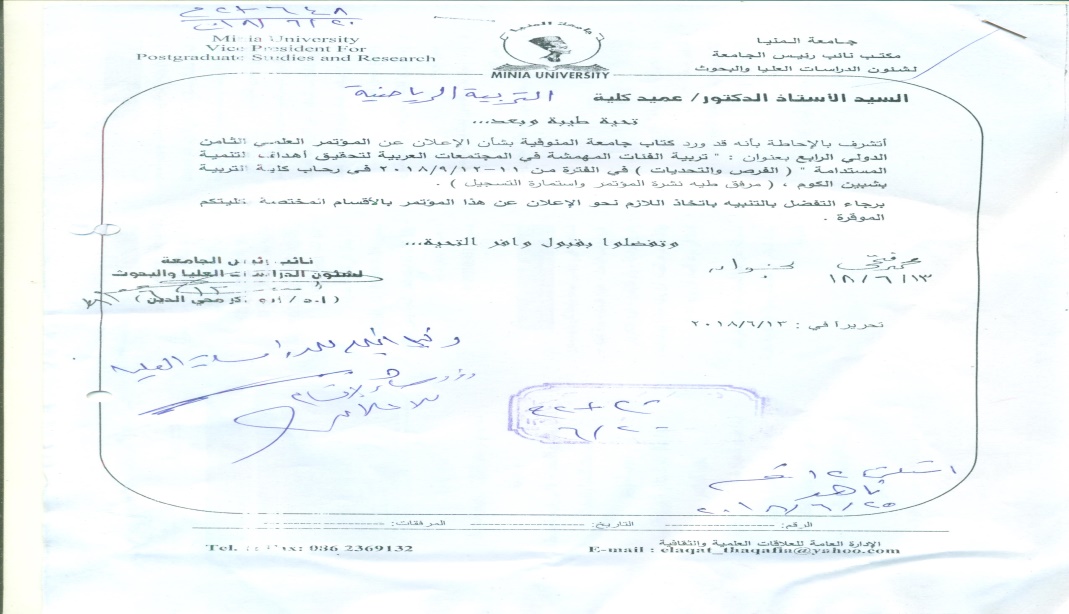 ٢٠/٦/٢٠١٨
Minia University
Vice President For
Postgraduate Studies and Research
جامعة المنيا
MINIA UNIVERSITY
جامعة المنيا
مكتب نائب رئيس الجامعة
لشئون الدراسات العليا والبحوث
السيد الأستاذ الدكتور/ عميد كلية التربية الرياضية
تحية طيبة وبعد...
أتشرف بالإحاطة بأنه قد ورد كتاب جامعة المنوفية بشأن الإعلان عن المؤتمر العلمي الثامن
الدولي الرابع بعنوان : " تربية الفئات المهمشة في المجتمعات العربية لتحقيق أهداف التنمية
المستدامة " ( الفرص والتحديات ) في الفترة من ١١-٢٠١٨/٩/١٢ في رحاب كلية التربية
بشبين الكوم ، ( مرفق طيه نشرة المؤتمر واستمارة التسجيل ) .
برجاء التفضل بالتنبيه باتخاذ اللازم نحو الإعلان عن هذا المؤتمر بالأقسام المختصة بكليتكم
الموقرة .
وتفضلوا بقبول وافر التحية...
نائب رئيس الجامعة
لشئون الدراسات العليا والبحوث
( أ.د/ محي الدين )
١٨/٦/١٣
تحريرا في : ٢٠١٨/٦/١٣
الدراسات العليا
٦/٢٠
ناهد
٢٠١٨/٦/٢٥
الرقم: -------------------- التاريخ: -------------------- المرفقات: --------------------
الإدارة العامة للعلاقات العلمية والثقافية
Tel. & Fax: 086 2369132
E-mail : elaqat_thaqafia@yahoo.com